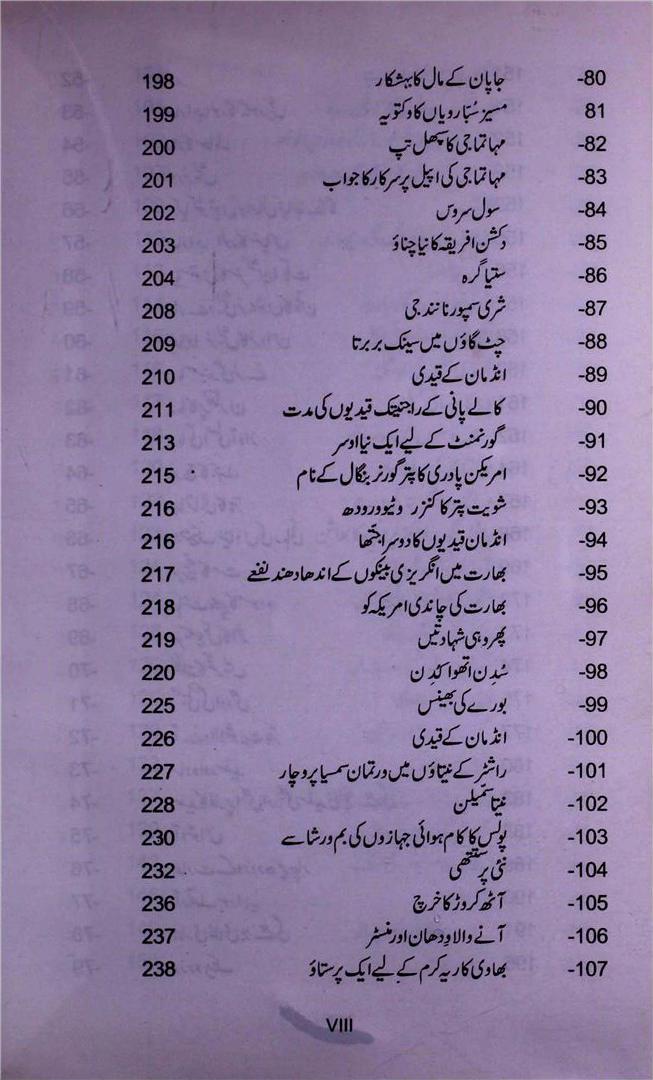 80- جاپان کے مال کا بہشکار 198
81 مسیز سُبّارویاں کا وکتویہ 199
82- مہاتماجی کا سپھل تپ 200
83- مہاتماجی کی اپیل پر سرکار کا جواب 201
84- سول سروس 202
85- دکشن افریقہ کا نیا چناؤ 203
86- ستیاگرہ 204
87- شری سمپورنانند جی 208
88- چٹ گاؤں میں سینک بربرتا 209
89- انڈمان کے قیدی 210
90- کالے پانی کے راجنیتک قیدیوں کی مدت 211
91- گورنمنٹ کے لیے ایک نیا اوسر 213
92- امریکن پادری کا پتر گورنر بنگال کے نام 215
93- شویت پتر کا کنزرویٹیو ورودھ 216
94- انڈمان قیدیوں کا دوسرا جتھا 216
95- بھارت میں انگریزی بینکوں کے اندھا دھند نفعے 217
96- بھارت کی چاندی امریکہ کو 218
97- پھر وہی شہادتیں 219
98- سُدِن اتھوا کُدِن 220
99- بورے کی بھینس 225
100- انڈمان کے قیدی 226
101- راشٹر کے نیتاؤں میں ورتمان سمسیا پر وچار 227
102- نیتا سمّیلن 228
103- پولس کا کام ہوائی جہازوں کی بم ورشا سے 230
104- نئی پرستھتی 232
105- آٹھ کروڑ کا خرچ 236
106- آنے والا ودھان اور منسٹر 237
107- بھاوی کاریہ کرم کے لیے ایک پرستاؤ 238
VIII